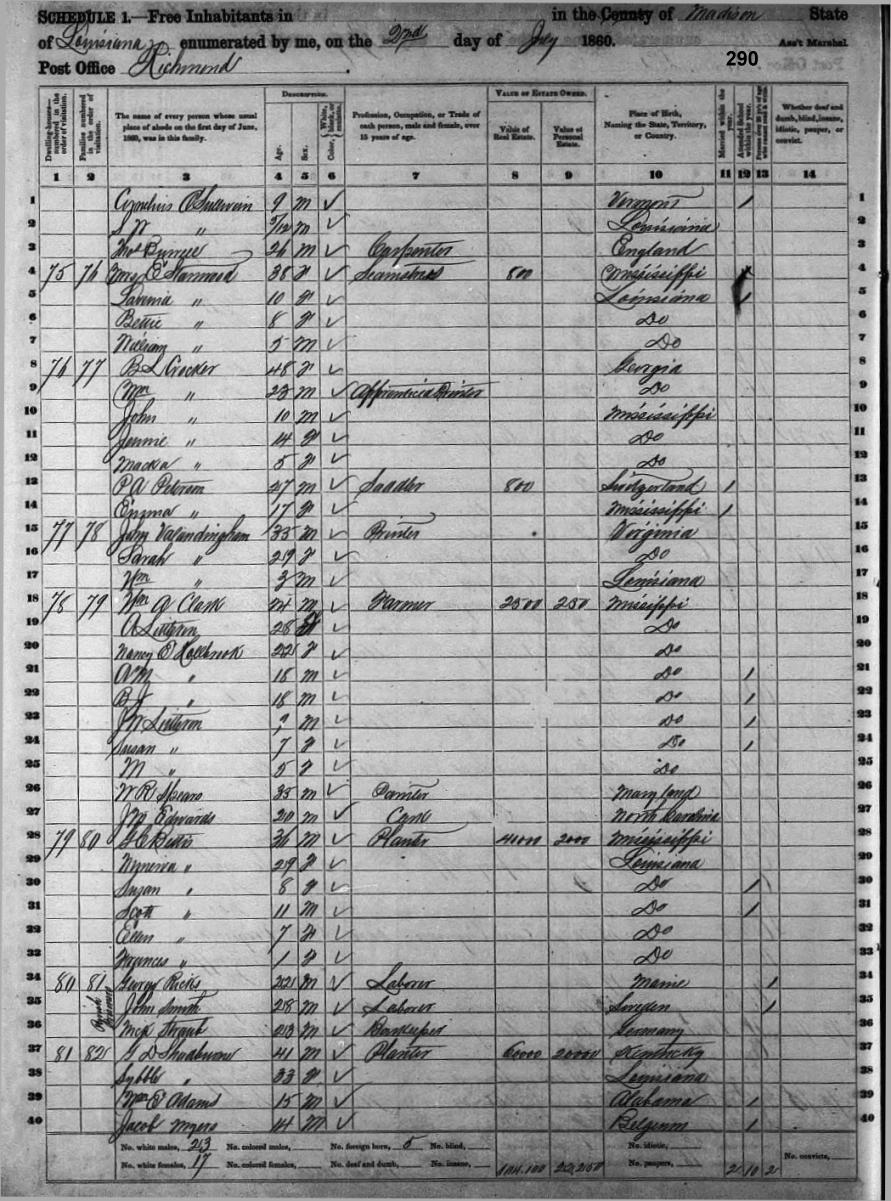 SCHEDULE 1.—Free Inhabitants in in the County of Madison State
of Louisiana enumerated by me, on the 2nd day of July 1860. Ass't Marshal
290
Post Office Richmond
Dwelling-houses numbered in the order of visitation.
Families numbered in the order of visitation.
The name of every person whose usual place of abode on the first day of June, 1860, was in this family.
DESCRIPTION.
Age.
Sex.
Color, White, black, or mulatto.
Profession, Occupation, or Trade of each person, male and female, over 15 years of age.
VALUE OF ESTATE OWNED.
Value of Real Estate.
Value of Personal Estate.
Place of Birth, Naming the State, Territory, or Country.
Married within the year.
Attended School within the year.
Whether deaf and dumb, blind, insane, idiotic, pauper, or convict.
1 2 3 4 5 6 7 8 9 10 11 12 13 14
1 Cornelius O'Sullivain 9 m ✓ Vermont / 1
2 S W " 5/12 m ✓ Louisiana 2
3 Thos 26 m ✓ Carpenter England 3
4 75 76 Mrs E 38 f ✓ Seamstress 800 Mississippi 4
5 Lavinia " 10 f ✓ Louisiana / 5
6 Bettie " 8 f ✓ Do 6
7 William " 5 m ✓ Do 7
8 76 77 B L Crocker 48 f ✓ Georgia 8
9 Wm " 23 m ✓ Apprenticed Printer Do 9
10 John " 10 m ✓ Mississippi 10
11 Jennie " 14 f ✓ Do 11
12 Macka " 5 f ✓ Do 12
13 P A Peterson 47 m ✓ Saddler 800 Switzerland 1 13
14 Emma " 17 f ✓ Mississippi 1 14
15 77 78 John Valandingham 35 m ✓ Printer Virginia 15
16 Sarah " 29 f ✓ Do 16
17 Wm " 3 m ✓ Louisiana 17
18 78 79 Wm A Clark 44 m ✓ Farmer 2500 250 Mississippi 18
19 A 28 f ✓ Do 19
20 Nancy E Holbrook 22 f ✓ Do 20
21 A M " 18 m ✓ Do / 21
22 B J " 18 m ✓ Do / 22
23 J W 9 m ✓ Do / 23
24 Susan " 7 f ✓ Do / 24
25 M " 5 f ✓ Do 25
26 W R Spears 35 m ✓ Painter Maryland 26
27 Jno Edwards 20 m ✓ North Carolina 27
28 79 80 G C Bettis 36 m ✓ Planter 41000 2000 Mississippi 28
29 Minerva " 29 f ✓ Louisiana 29
30 Susan " 8 f ✓ Do / 30
31 Scott " 11 m ✓ Do / 31
32 Ellen " 7 f ✓ Do 32
33 Frances " 1 f ✓ Do 33
34 80 81 George Ricks 22 m ✓ Laborer Maine / 34
35 John Smith 28 m ✓ Laborer Sweden / 35
36 Straub 23 m ✓ Barkeeper Germany 36
37 81 82 G D Shadburne 41 m ✓ Planter 60000 20000 Kentucky 37
38 Sybble " 33 f ✓ Louisiana 38
39 Wm E Adams 15 m ✓ Alabama / 39
40 Jacob Myers 14 m ✓ Belgium / 40
No. white males, 23 No. colored males, No. foreign born, 5 No. blind, No. idiotic,
No. white females, 17 No. colored females, No. deaf and dumb, No. insane, 104.100 22,250 No. paupers, 2 10 2 No. convicts,